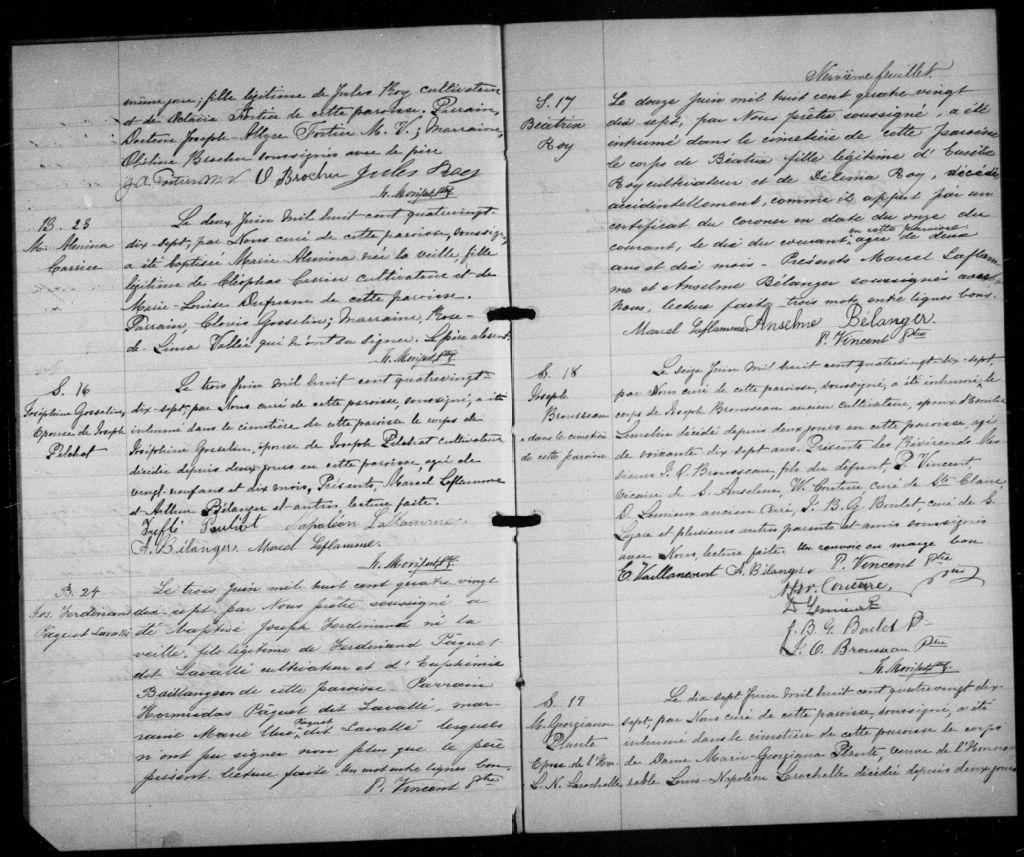 même jour, fille légitime de Jules Roy cultivateur
et de Octavie Fortier de cette paroisse. Parrain,
Docteur Joseph Fortier M. V.; Marraine,
Brocher soussignés avec le père
J. A. Fortier M. V. O Brocher Jules Roy
B. 23
M. Alexina
Carrier
Le deux Juin mil huit cent quatrevingt-
dix-sept, par Nous curé de cette paroisse, soussigné,
a été baptisée Marie Alexina née la veille, fille
légitime de Cléophas Carrier cultivateur et de
Marie-Louise Dufresne de cette paroisse.
Parrain, Clovis Gosselin; Marraine, Rose-
de-Lima Vallée qui n'ont su signer. Le père absent.
S. 16
Joséphine Gosselin,
Epouse de Joseph
Pelchat
Le trois Juin mil huit cent quatrevingt-
dix-sept, par Nous curé de cette paroisse, soussigné, a été
inhumé dans le cimetière de cette paroisse le corps de
Joséphine Gosselin, épouse de Joseph Pelchat cultivateur
décédée depuis deux jours en cette paroisse, agée de
vingt-neuf ans et dix mois, Présents, Marcel Laflamme
et Arthur Bélanger et autres, lecture faite.
Treflé Pouliot Napoléon Laflamme.
A. Bélanger. Marcel Laflamme.
B. 24
Jos. Ferdinand
Pâquet Lavallé
Le trois Juin mil huit cent quatre vingt
dix-sept, par Nous prêtre soussigné a
été baptisé Joseph Ferdinand né la
veille, fils légitime de Ferdinand Pâquet
dit Lavallé cultivateur et d'Euphémie
Baillargeon de cette paroisse Parrain
Hormidas Pâquet dit Lavallé, mar-
raine Marie Paquet dit Lavallé lesquels
n'ont pu signer non plus que le père
présent, lecture faite. Un mot entre lignes bon.
P. Vincent Ptre
Neuvième feuillet.
S. 17
Béatrix
Roy
Le douze Juin mil huit cent quatre vingt
dix sept, par Nous prêtre soussigné, a été
inhumé dans le cimetière de cette paroisse
le corps de Béatrix fille légitime d'Eusèbe
Roy cultivateur et de Délima Roy, décédée
accidentellement, comme il appert par un
certificat du coroner en date du onze du
courant, le dix du courant en cette paroisse, agée de deux
ans et dix mois. Présents Marcel Laflam-
me et Anselme Bélanger soussignés avec
Nous, lecture faite, trois mots entre lignes bons.
Marcel Laflamme Anselme Bélanger.
P. Vincent Ptre
S. 18
Joseph
Brousseau
dans le cimetière
de cette paroisse
Le seize Juin mil huit cent quatrevingt-dix-sept,
par Nous curé de cette paroisse, soussigné, a été inhumé, le
corps de Joseph Brousseau ancien cultivateur, époux d'Henriette
Lemelin décédé depuis deux jours en cette paroisse, agé
de soixante dix sept ans. Présents les Révérends Mes-
sieurs J. O. Brousseau, fils du défunt P. Vincent,
vicaire de S. Anselme, W. Couture curé de Ste Claire,
D. Lemieux ancien curé, J. B. G. Boulet, curé de S.
Lazare et plusieurs autres parents et amis soussignés
avec Nous, lecture faite. Un renvoi en marge bon
E Vaillancourt A. Bélanger. P. Vincent Ptre
Couture, ptre
D Lemieux
J. B. G. Boulet P.
J. O. Brousseau Ptre
S. 19
M. Georgiana
Plante
Epse de l'Hon.
L. N. Larochelle
Le dix-sept Juin mil huit cent quatrevingt dix-
sept, par Nous curé de cette paroisse, soussigné, a été
inhumé dans le cimetière de cette paroisse le corps
de Dame Marie-Georgiana Plante, veuve de l'Honno-
rable Louis-Napoléon Larochelle décédée depuis deux jours